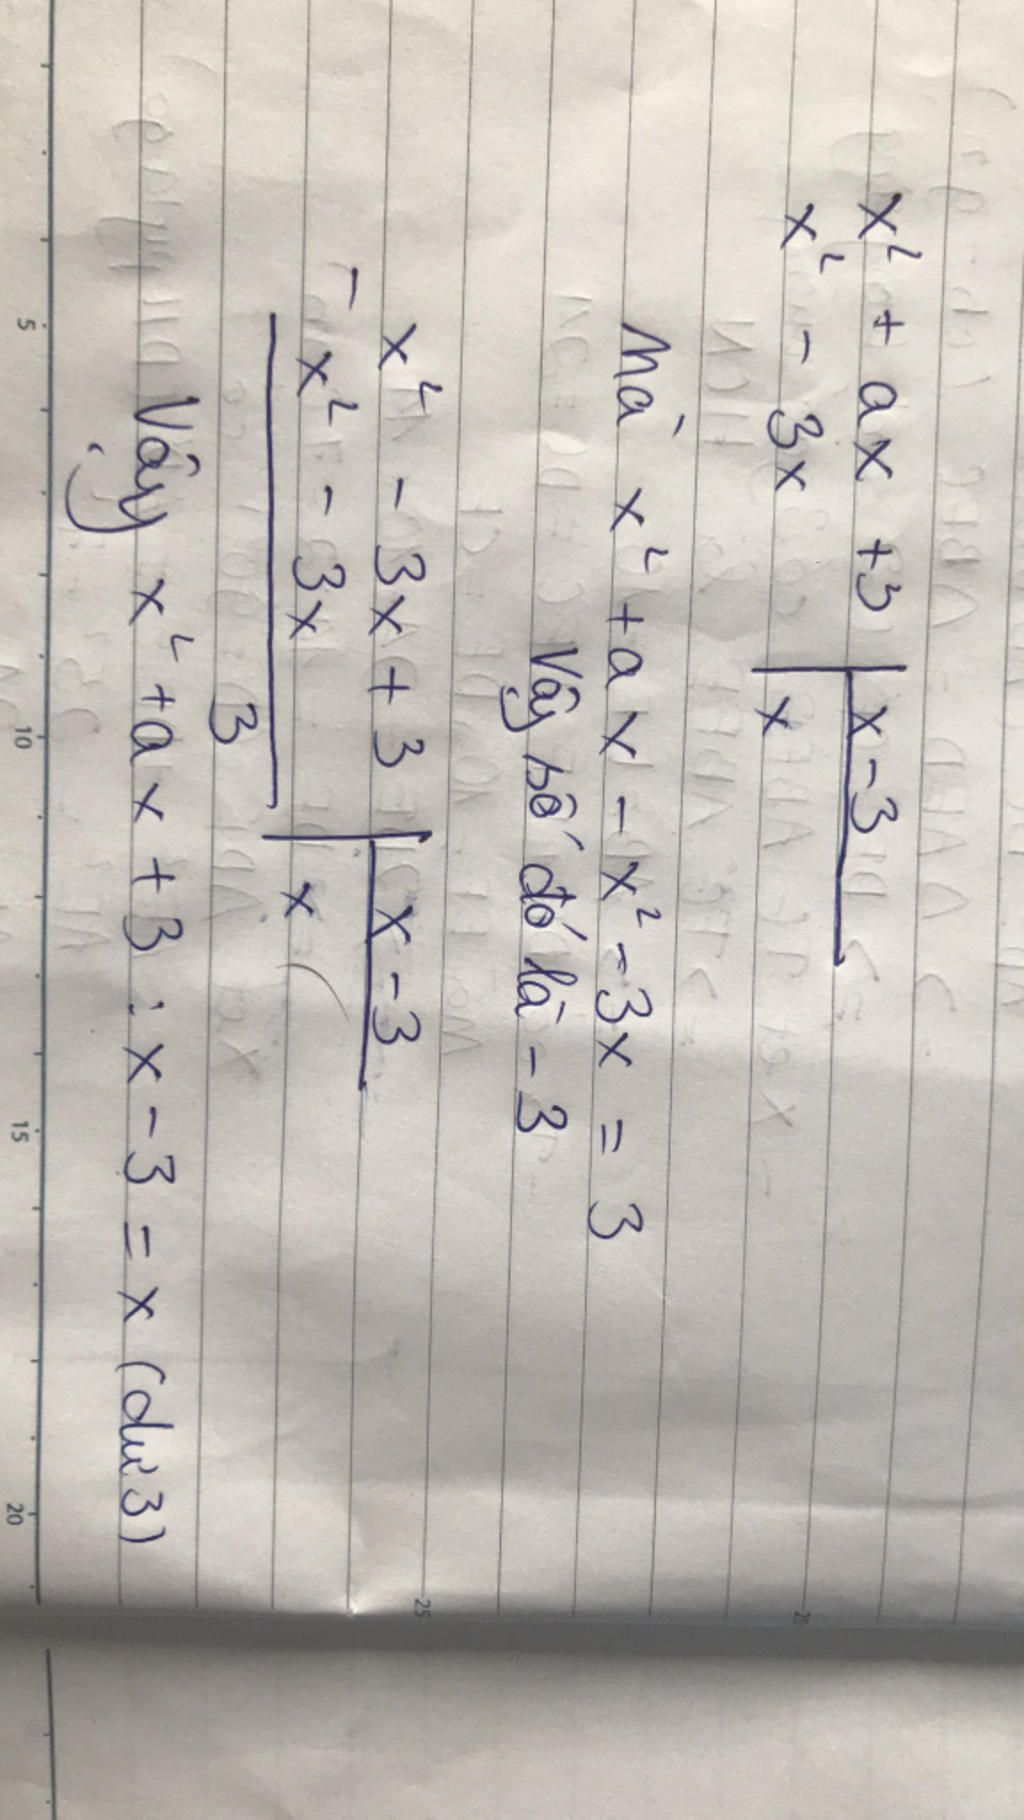 x² + ax + 3 | x - 3
x² - 3x | x
Mà x² + ax - x² - 3x = 3
Vậy số đó là - 3
x² - 3x + 3 | x - 3
- x² - 3x | x
3
Vậy x² + ax + 3 : x - 3 = x (dư 3)
5 10 15 20
20
25